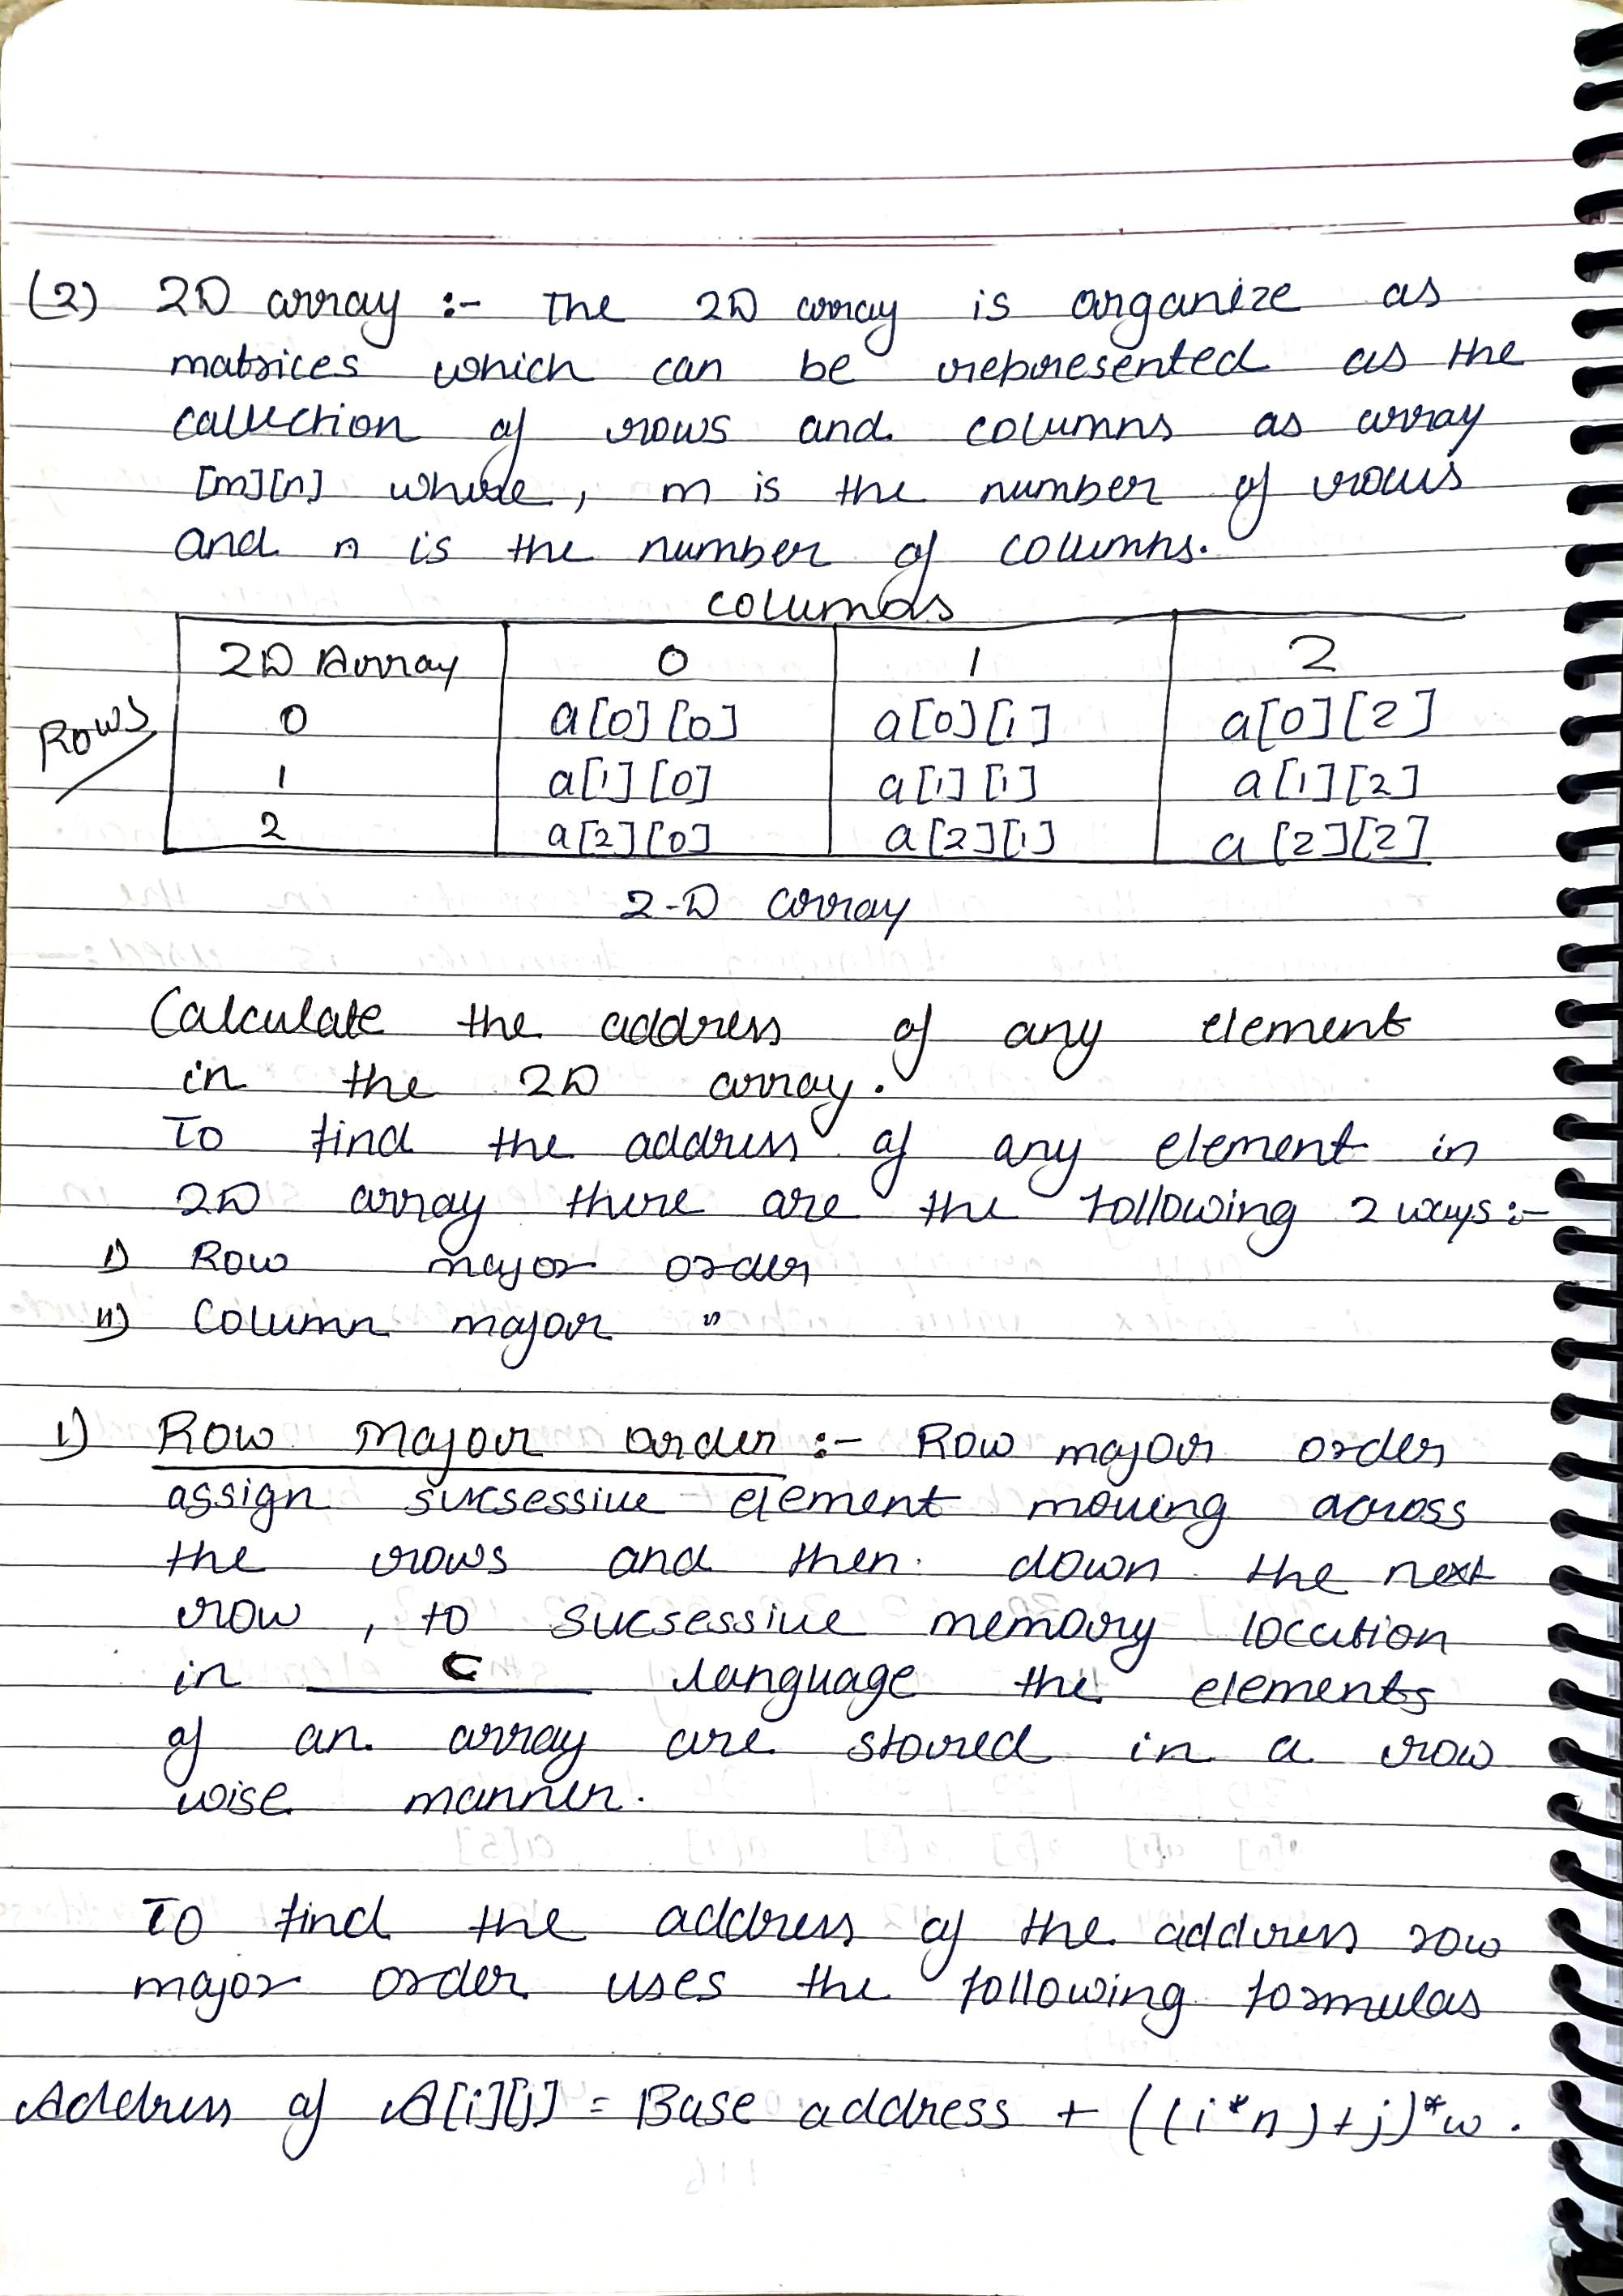 (2) 2D array :- The 2D array is organize as
matrices which can be represented as the
collection of rows and columns as array
[m][n] where, m is the number of rows
and n is the number of columns.
columns
2D Array 0 1 2
Rows
0 a[0][0] a[0][1] a[0][2]
1 a[1][0] a[1][1] a[1][2]
2 a[2][0] a[2][1] a[2][2]
2-D array
Calculate the address of any element
in the 2D array.
To find the address of any element in
2D array there are the following 2 ways :-
i) Row major order
ii) Column major "
i) Row Major order :- Row major order
assign sucsessive element moving across
the rows and then down the next
row, to sucsessive memory location
in C language the elements
of an array are stored in a row
wise manner.
To find the address of the address row
major order uses the following formulas
Address of A[i][j] = Base address + ((i*n)+j)*w.